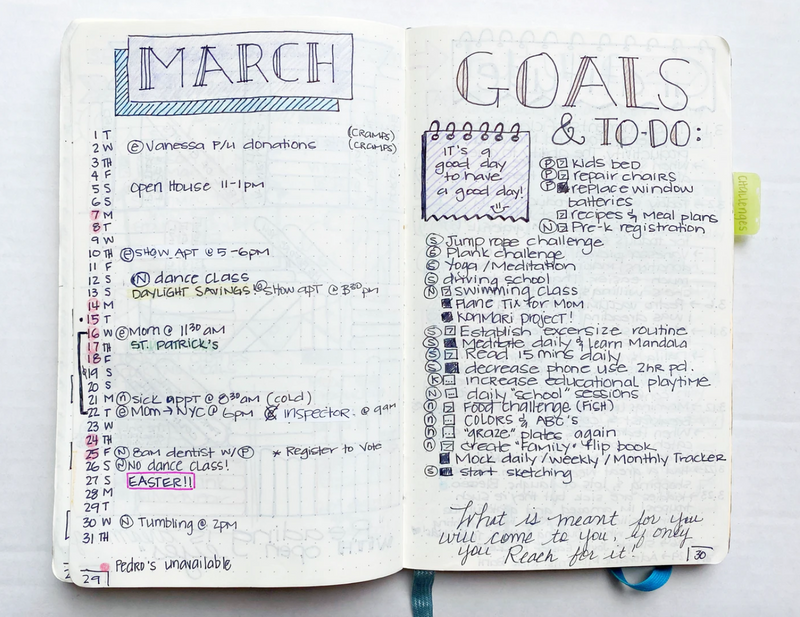 MARCH
1 T (CRAMPS)
2 W e Vanessa P/u donations (CRAMPS)
3 TH
4 F
5 S open House 11-1pm
6 S
7 M
8 T
9 W
10 TH e SHOW APT @ 5-6pm
11 F
12 S N dance class
13 S DAYLIGHT SAVINGS! e SHOW apt @ 3:30 pm
14 M
15 T
16 W e Mom @ 11:30 am
17 TH ST. PATRICK'S
18 F
19 S
20 S
21 M n sick appt @ 8:30am (cold)
22 T e Mom → NYC @ 6pm & inspector. @ 9am
23 W
24 TH
25 F N 8am dentist w/ P * Register to Vote
26 S N NO dance class!
27 S EASTER!!
28 M
29 T
30 W N Tumbling @ 2pm
31 TH
Pedro's unavailable
29
GOALS
& TO-DO:
IT'S a
good day
to have
a good day!
P kids bed
P repair chairs
P replace window
batteries
recipes & Meal plans
N Pre-k registration
S Jump rope challenge
S Plank challenge
S Yoga / Meditation
S driving school
N swimming class
Plane Tix for Mom
KonMari project!
S Establish excersize routine
S Meditate daily & Learn Mandala
S Read 15 mins daily
S decrease phone use 2hr pd.
K increase educational playtime
N daily "school" sessions
n Food challenge (Fish)
n COLORS & ABC's
n "graze" plates again
n create "Family" flip book
Mock daily / weekly / Monthly Tracker
S start sketching
What is meant for you
will come to you, if only
you Reach for it!
30
CHALLENGES